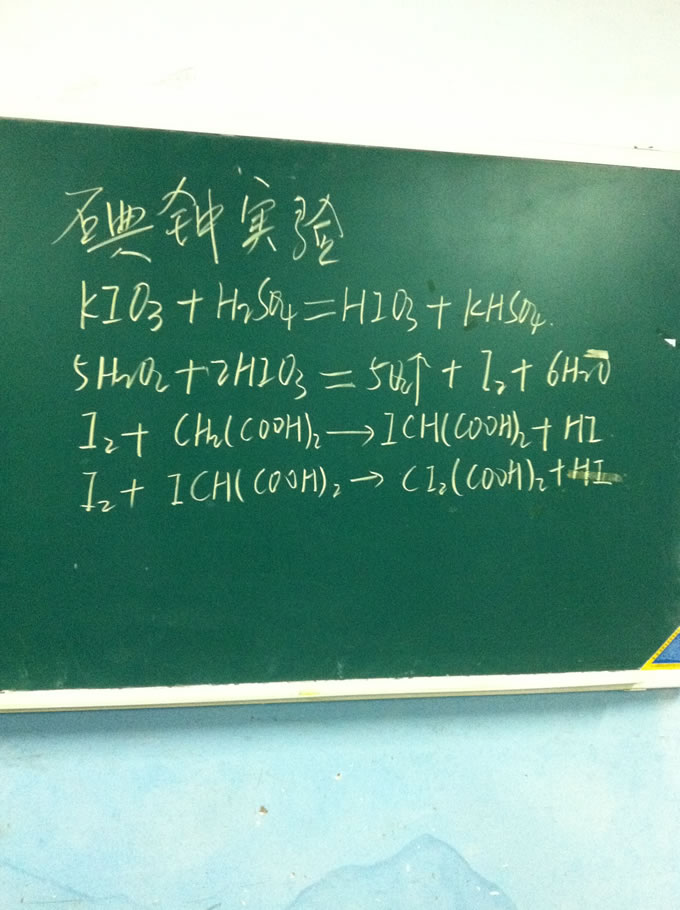 碘钟实验
KIO₃ + H₂SO₄ = HIO₃ + KHSO₄.
5H₂O₂ + 2HIO₃ = 5O₂↑ + I₂ + 6H₂O
I₂ + CH₂(COOH)₂ → ICH(COOH)₂ + HI
I₂ + ICH(COOH)₂ → CI₂(COOH)₂ + HI